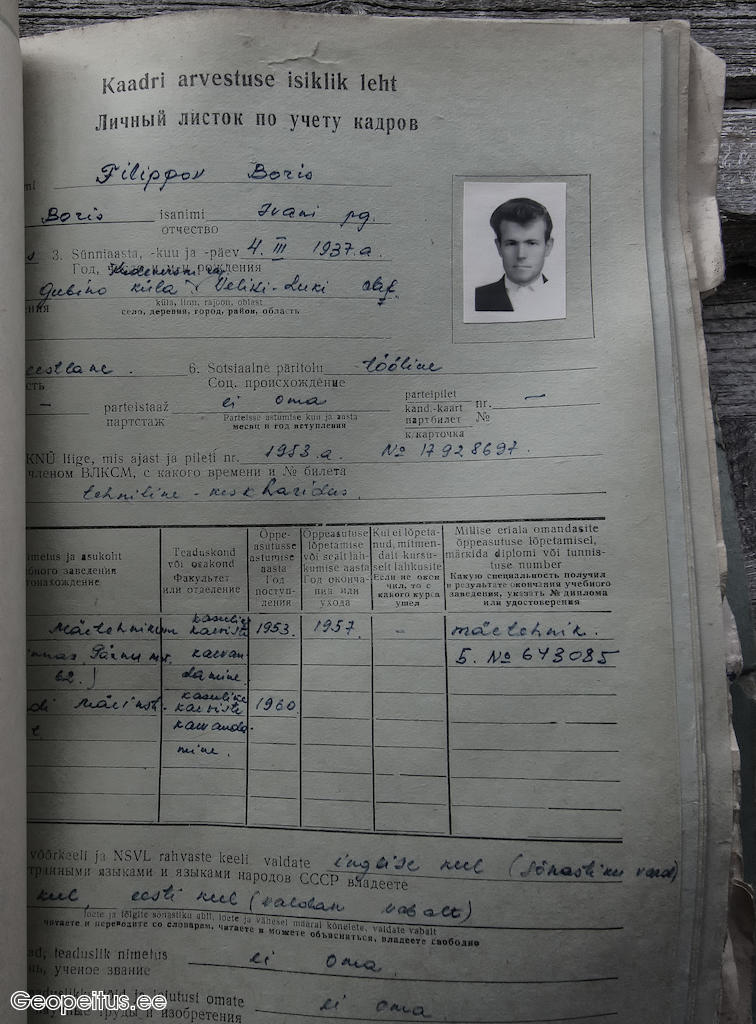 Kaadri arvestuse isiklik leht
Личный листок по учету кадров
Filippov Boris
Boris isanimi Ivani pg.
отчество
3. Sünniaasta, -kuu ja -päev 4. III 1937.a.
Год, рождения
Gubino küla Veliki-Luki obl.
küla, linn, rajoon, oblast
село, деревня, город, район, область
eestlane. 6. Sotsiaalne päritolu tööline
Соц. происхождение
– parteistaaž ei oma parteipilet
kand.-kaart nr. –
партстаж Parteisse astumise kuu ja aasta партбилет №
месяц и год вступления к/карточка
KNÜ liige, mis ajast ja pileti nr. 1953.a. № 17928697.
членом ВЛКСМ, с какого времени и № билета
tehniline-keskharidus
nimetus ja asukoht
бного заведения
тонахождение
Teaduskond
või osakond
Факультет
или отделение
Õppe-
asutusse
astumise
aasta
Год
поступ-
ления
Õppeasutuse
lõpetamise
või sealt lah-
kumise aasta
Год оконча-
ния или
ухода
Kui ei lõpeta-
nud, mitmen-
dalt kursu-
selt lahkusite
Если не окон
чил, то с
какого курса
ушел
Millise eriala omandasite
õppeasutuse lõpetamisel,
märkida diplomi või tunnis-
tuse number
Какую специальность получил
в результате окончания учебного
заведения, указать № диплома
или удостоверения
Mäetehnikum kasulike kaeviste 1953. 1957. – mäetehnik.
Pärnu mnt. kaevan- 5. № 643085
62.) damine.
kasulike
kaeviste 1960.
kaevanda-
mine.
võõrkeeli ja NSVL rahvaste keeli valdate inglise keel (sõnastiku varal)
транными языками и языками народов СССР владеете
keel, eesti keel (valdan vabalt)
loete ja tõlgite sõnastiku abil, loete ja vähesel määral kõnelete, valdate vabalt
читаете и переводите со словарем, читаете и можете объясняться, владеете свободно
ad, teaduslik nimetus ei oma
нь, ученое звание
leiutusi omate ei oma
научные труды и изобретения
Geopeitus.ee